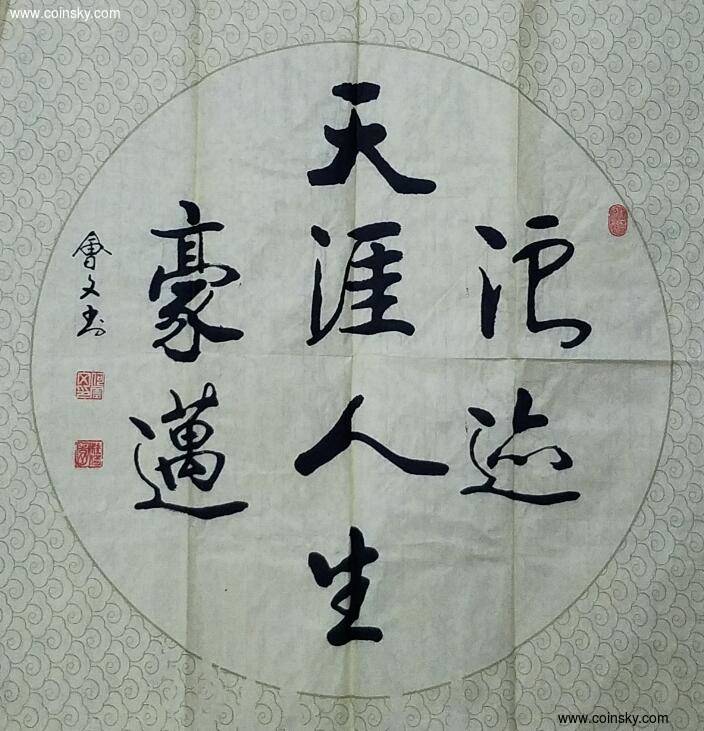 www.coinsky.com
浪迹
天涯人生
豪邁
會文书
www.coinsky.com